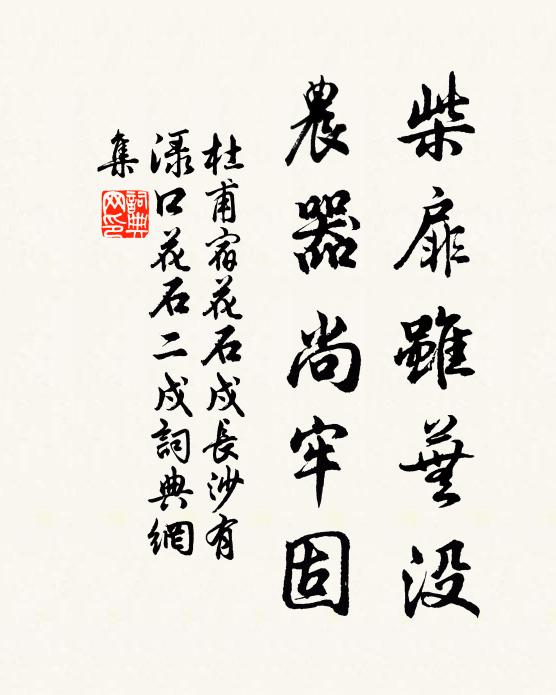 柴扉雖蕪没
農器尚牢固
杜甫宿花石戍長沙有
渌口花石二戍詞典網
集
詞典
网印